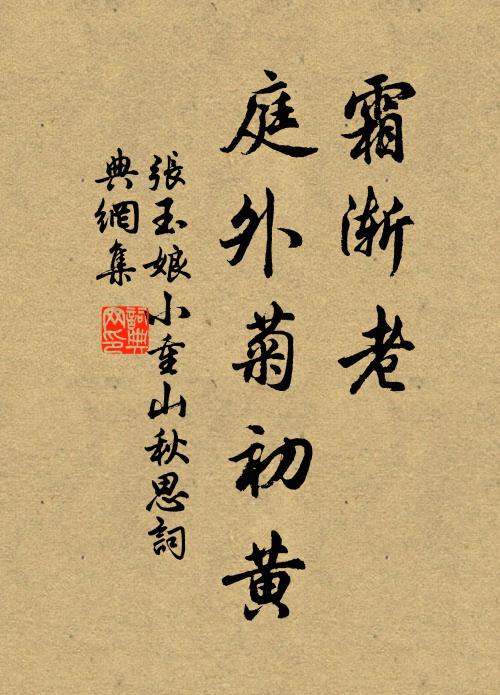 霜渐老
庭外菊初黄
張玉娘小重山秋思詞
典網集
詞典
网印